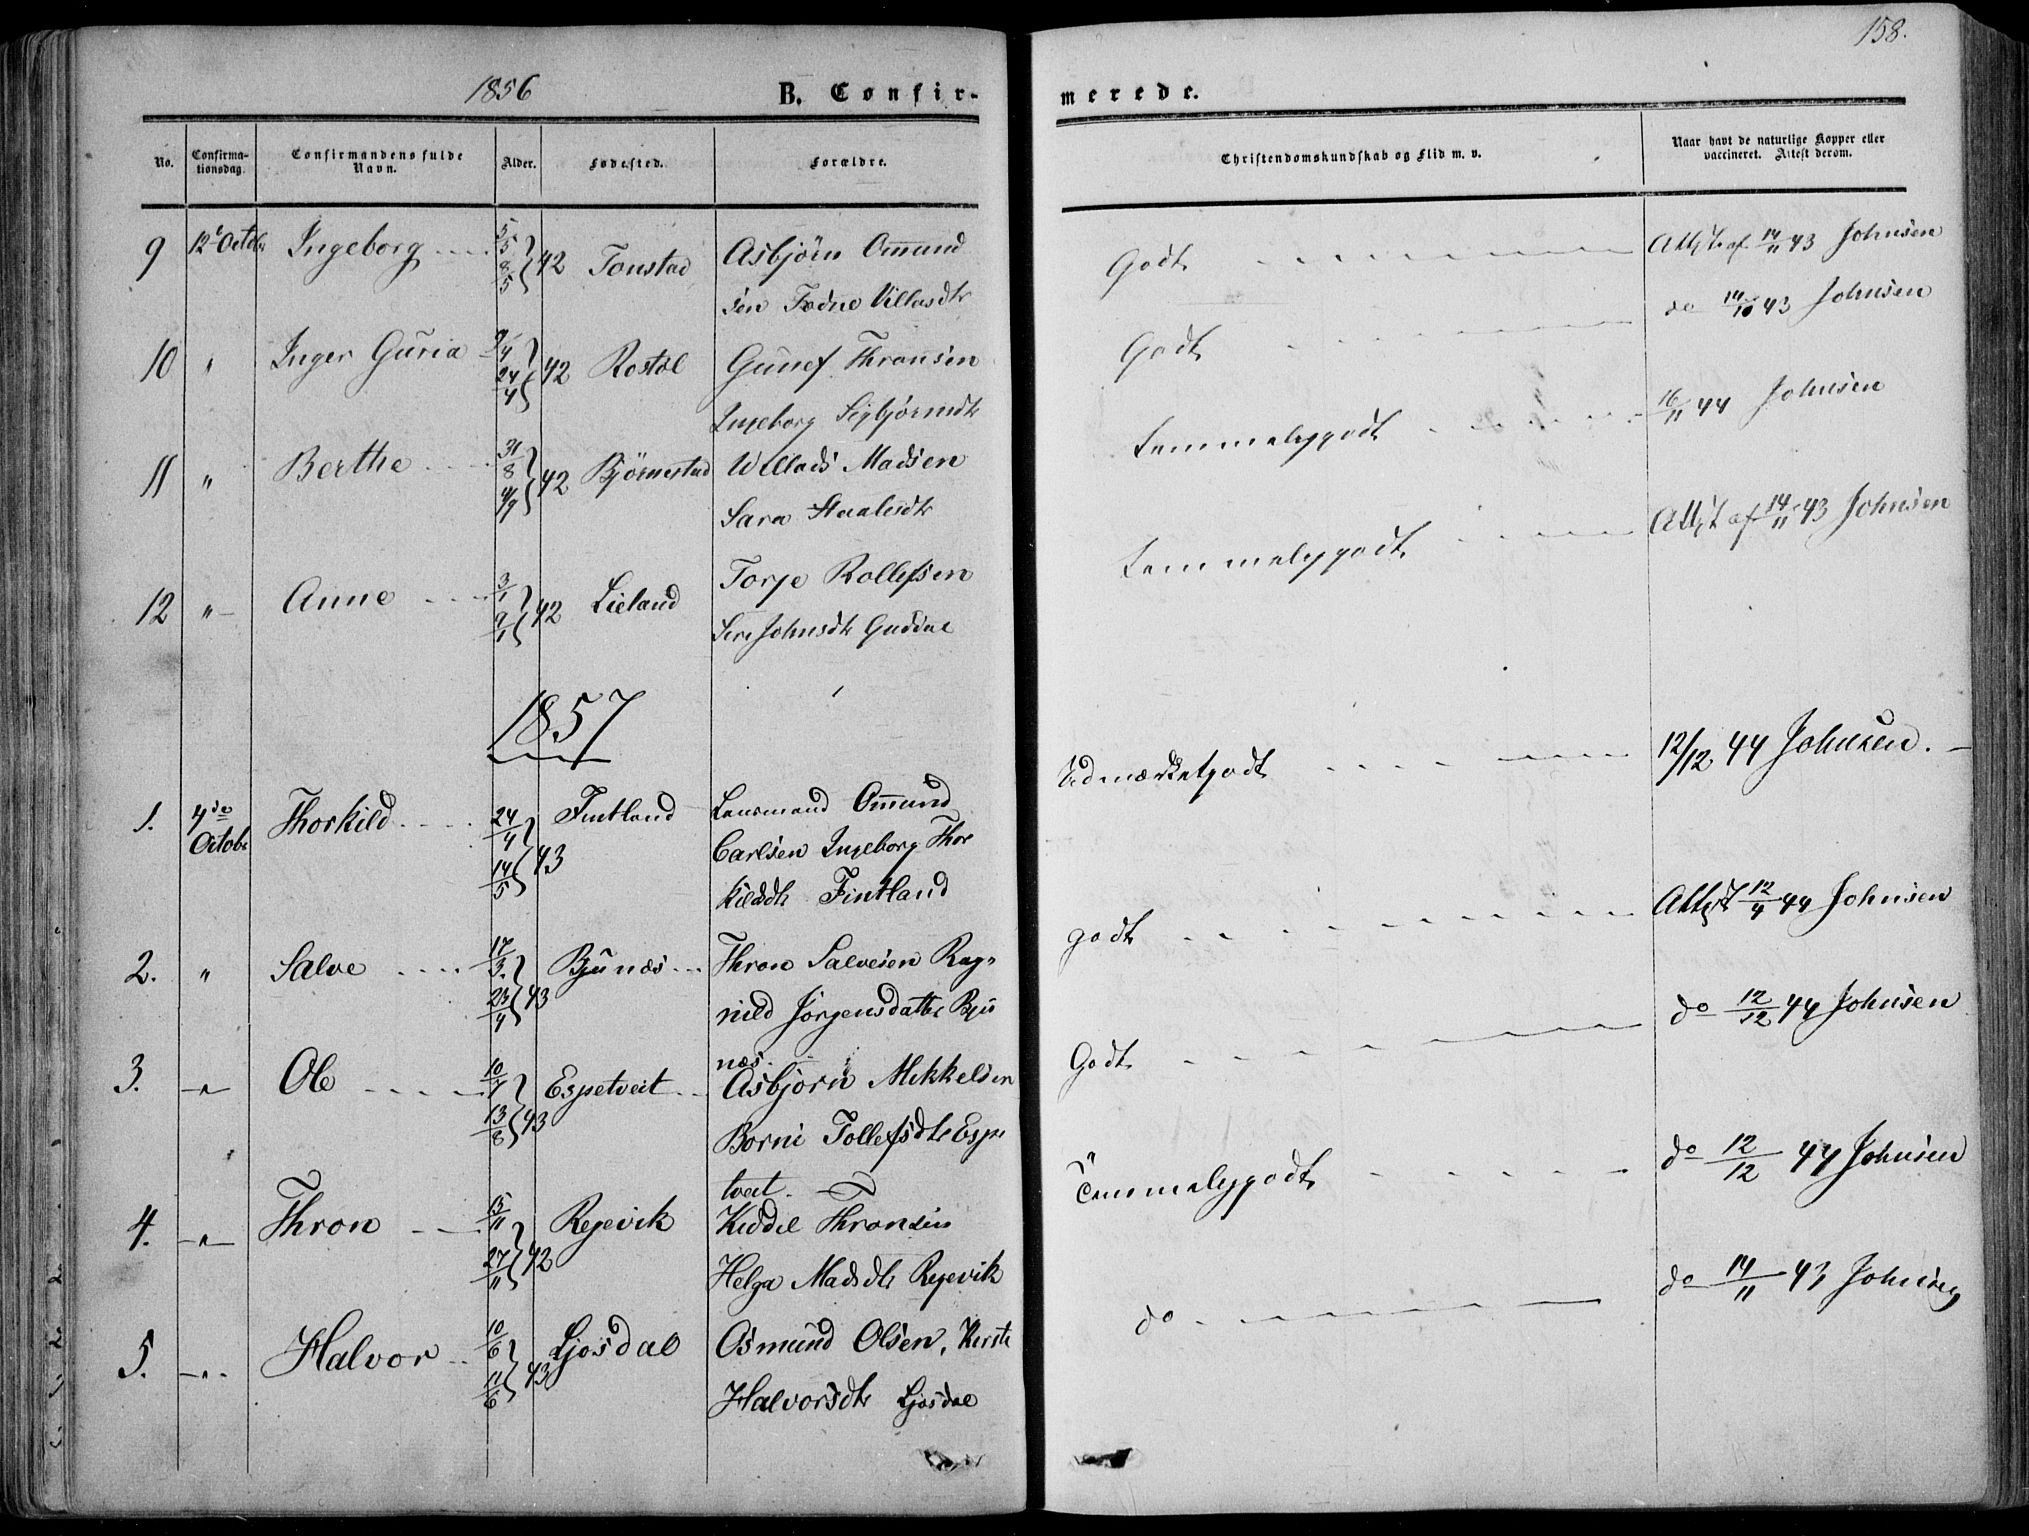 158.
1856 B. Confir-
merede.
No. Confirma-
tionsdag. Confirmandens fulde
Navn. Alder. Fødested. Forældre.
Christendomskundskab og Flid m. v. Naar havt de naturlige Kopper eller
vaccineret. Attest derom.
9 12t Octobr Ingeborg 5/5 8/5 } 42 Tonstad Asbjörn Omund
sen Tedne Villasdtr
Godt Attst af 14/11 43 Johnsen
10 " Inger Guria 9/4 24/4 } 42 Rostöl Gunef Thronsen
Ingeborg Sigbjörnsdtr
Godt do 14/10 43 Johnsen
11 " Berthe 31/8 4/9 } 42 Björnestad Willads Madsen
Sara Staalesdtr
Temmeliggodt 16/11 44 Johnsen
12 " Anne 3/1 9/1 } 42 Lieland Torje Rollefsen
Siri Johnsdtr Guddal
Temmeliggodt Attst af 14/11 43 Johnsen
1857
1. 4de
Octobr Thorkild 24/4 14/5 } 43 Fintland Lensmand Omund
Carlsen Ingeborg Thor
kildsdtr Fintland
Udmærketgodt 12/12 44 Johnsen.
2. " Salve 17/3 23/4 } 43 Bjunæs Thron Salvesen Rag-
nild Jörgensdatter Bju
næs.
godt Attst 12/4 44 Johnsen
3. " Ole 10/7 13/8 } 43 Espetveit Asbjörn Mikkelsen
Borni Tollefsdtr Espe
tveit.
Godt do 12/12 44 Johnsen
4. " Thron 15/11 27/11 } 42 Rejevik Keddel Thronsen
Helga Madsdtr Rejevik
Temmeliggodt do 12/12 44 Johnsen
5. " Halvor 10/6 11/6 } 43 Ljosdal Osmund Olsen, Kirsti
Halvorsdtr Ljosdal
do do 14/11 43 Johnsen